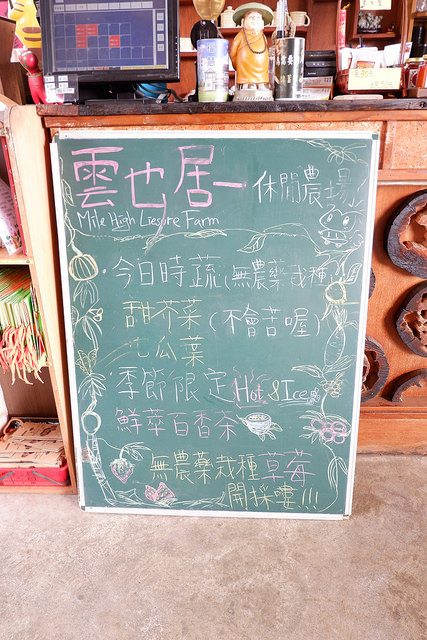 雲也居一 休閒農場
Mile High Liesure Farm
·今日時蔬(無農藥栽種)
甜芥菜(不會苦喔)
瓜葉
·季節限定Hot&Ice
鮮萃百香茶
無農藥栽種草莓
開採嘍!!!